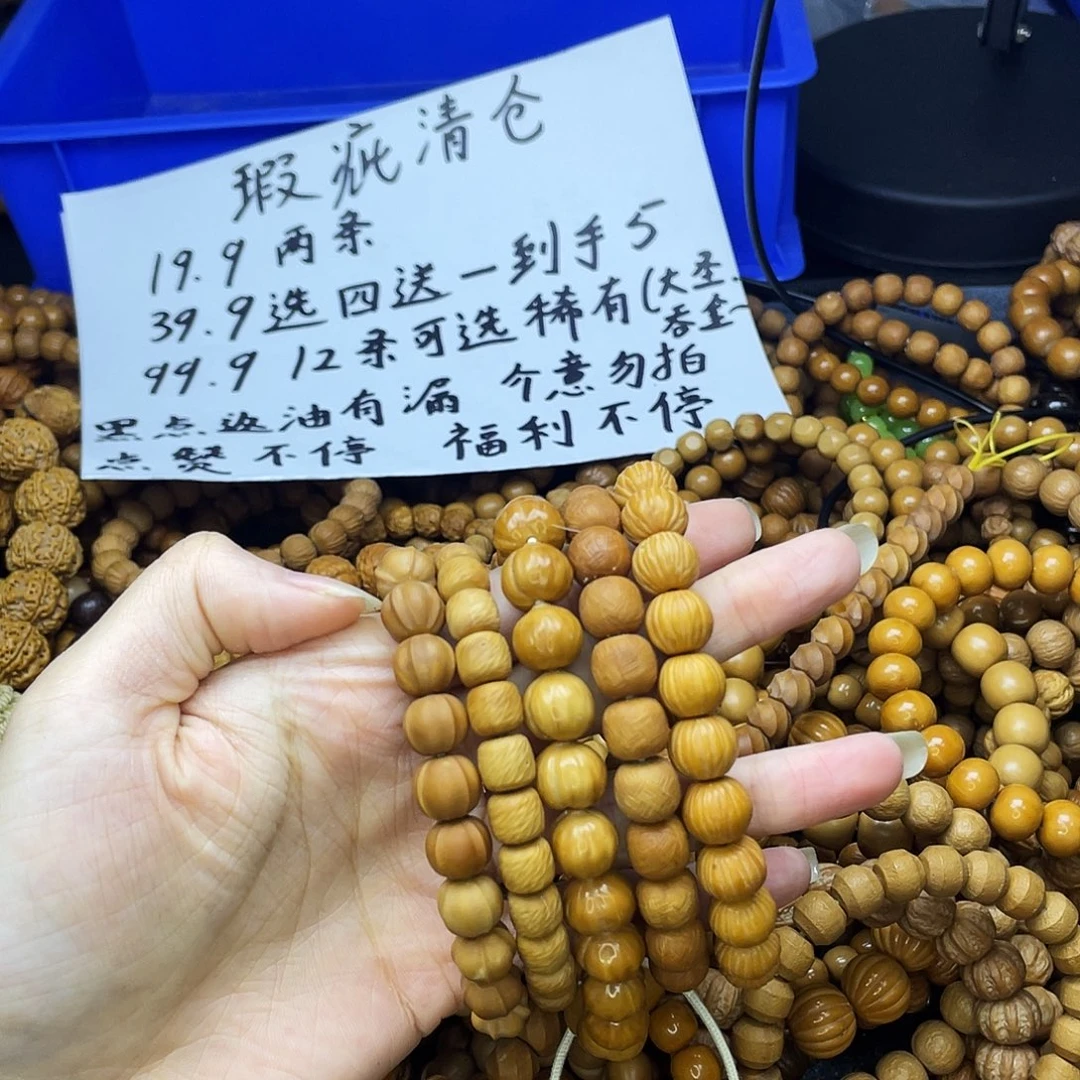 瑕疵清仓
19.9 两条
39.9选四送一到手5
99.9 12条可选稀有(大圣
吞金~
黑点返油有漏 介意勿拍
点赞不停 福利不停